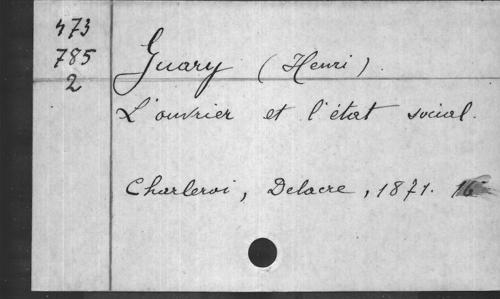 473
785
2
Guary (Henri).
L'ouvrier et l'état social.
Charleroi, Delacre, 1871.